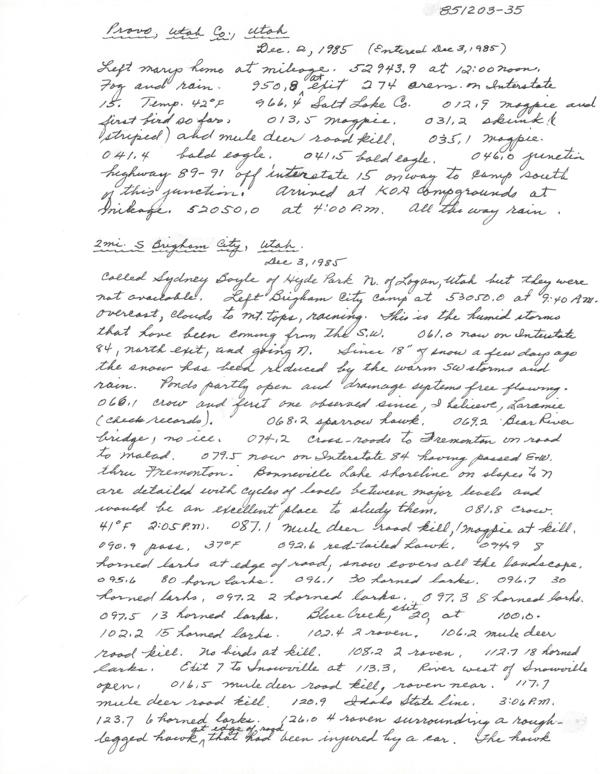 851203-35
Provo, Utah Co., Utah
Dec. 2, 1985 (Entered Dec 3, 1985)
Left marip home at mileage. 52943.9 at 12:00 noon.
Fog and rain. 950.8 at exit 274 orem. on Interstate
15. Temp. 42°F 966.4 Salt Lake Co. 012.9 magpie and
first bird so far. 013.5 magpie. 031.2 skunk (
striped) and mule deer road kill. 035.1 magpie.
041.4 bald eagle. 041.5 bald eagle. 046.0 junction
highway 89-91 off interstate 15 on way to camp south
of this junction. Arrived at KOA Campgrounds at
mileage. 52050.0 at 4:00 P.M. All the way rain.
2 mi. S Brigham City, Utah.
Dec 3, 1985
Called Sydney Boyle of Hyde Park N. of Logan, Utah but they were
not available. Left Brigham City camp at 53050.0 at 9:40 A.M.
overcast, clouds to mt. tops, raining. This is the humid storms
that have been coming from the S.W. 061.0 now on Interstate
84, north exit, and going N. Since 18" of snow a few days ago
the snow has been reduced by the warm SW storms and
rain. Ponds partly open and drainage systems free flowing.
066.1 crow and first one observed since, I believe, Laramie
(check records). 068.2 sparrow hawk. 069.2 Bear River
bridge, no ice. 074.2 cross-roads to Tremonton on road
to malad. 079.5 now on Interstate 84 having passed E-W.
thru Tremonton. Bonneville Lake shoreline on slopes to N
are detailed with cycles of levels between major levels and
would be an excellent place to study them. 081.8 crow.
41°F 2:05 P.M. 087.1 mule deer road kill, 1 magpie at kill.
090.9 pass. 37°F 092.6 red-tailed hawk. 094.9 8
horned larks at edge of road, snow covers all the landscape.
095.6 80 horn larks. 096.1 30 horned larks. 096.7 30
horned larks, 097.2 2 horned larks. 097.3 8 horned larks.
097.5 13 horned larks. Blue Creek, exit 20, at 100.0.
102.2 15 horned larks. 102.4 2 raven. 106.2 mule deer
road kill. No birds at kill. 108.2 2 raven. 112.7 18 horned
larks. Exit 7 to Snowville at 113.3. River west of Snowville
open. 016.5 mule deer road kill, raven near. 117.7
mule deer road kill. 120.9 Idaho State line. 3:06 P.M.
123.7 6 horned larks. 126.0 4 raven surrounding a rough-
legged hawk at edge of road that had been injured by a car. The hawk